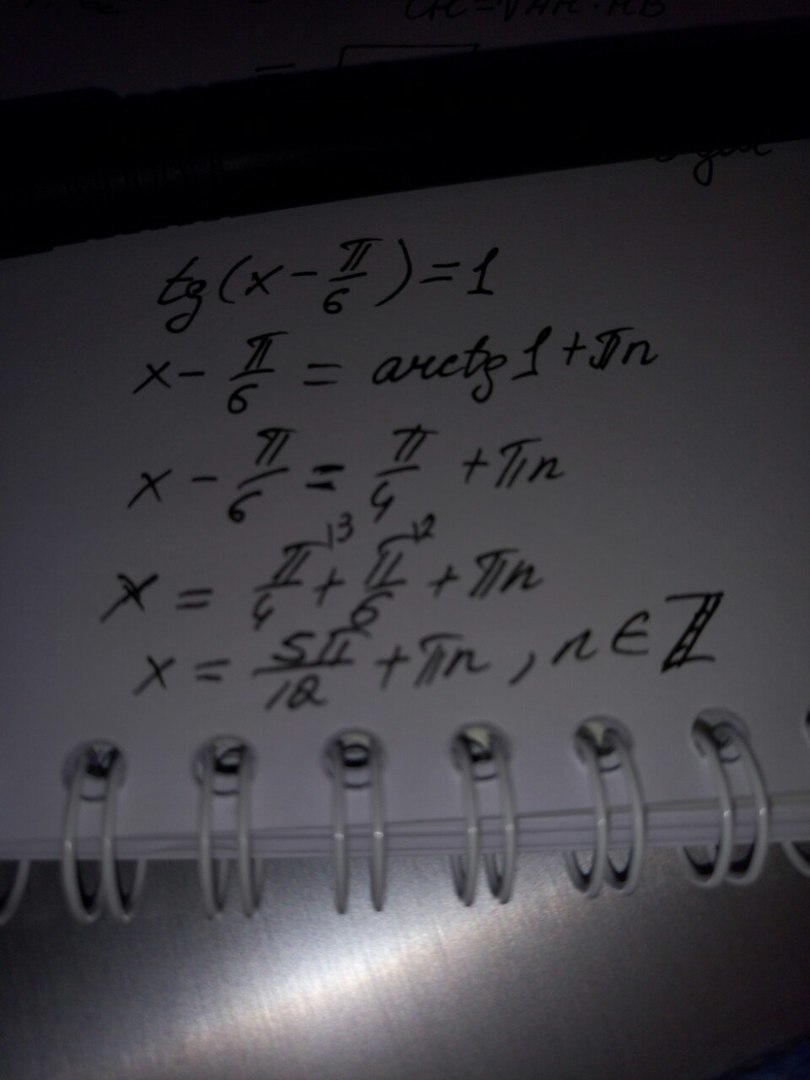 CH=√AH·HB
=
tg(x-π/6)=1
x-π/6=arctg1+πn
x-π/6=π/4+πn
x=π/4\3+π/6\2+πn
x=5π/12+πn, n∈ℤ